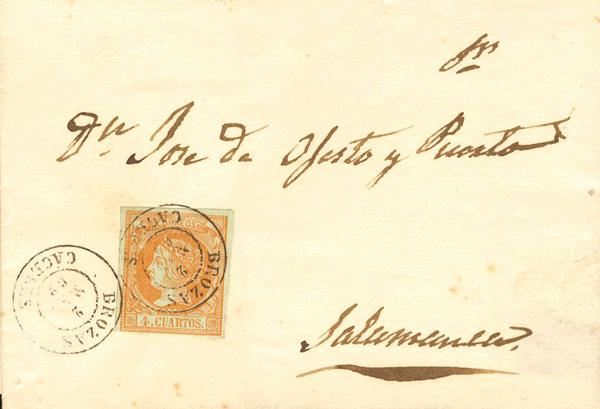 Sr.
Dn. Jose de Ojesto y Puerto
Salamanca.
BROZAS
CACERES
BROZAS
CACERES
4. CUARTOS.